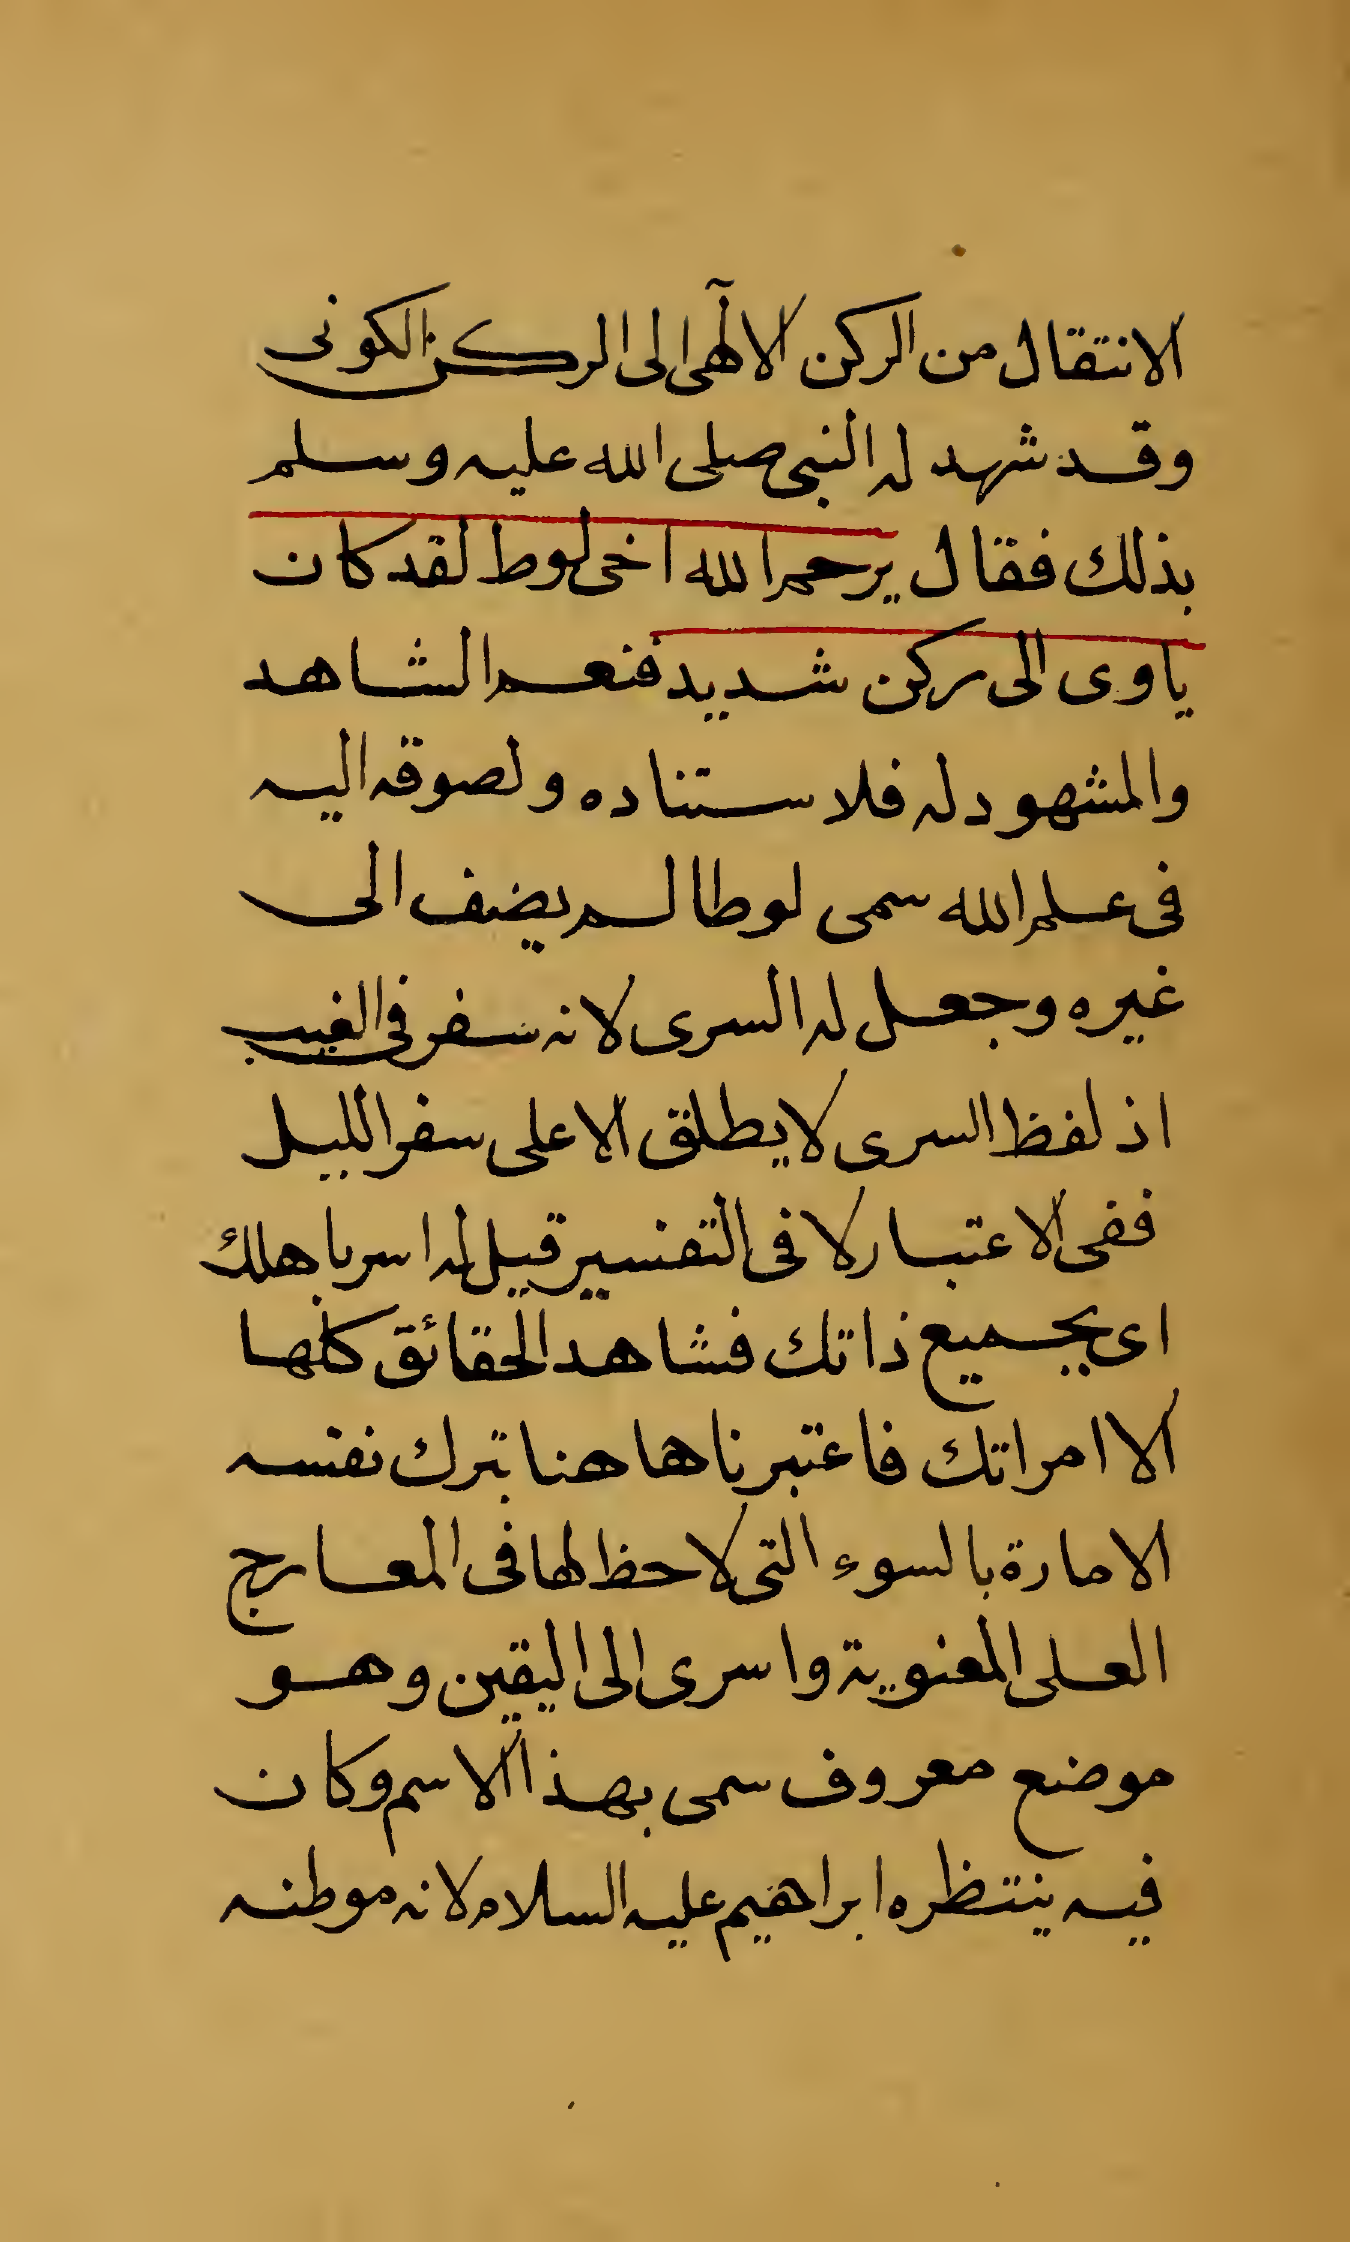 الانتقال من الركن الالٓهى الى الركن الكونى
وقد شهد له النبى صلى الله عليه وسلم
بذلك فقال يرحم الله اخى لوط لقد كان
ياوى الى ركن شديد فنعم الشاهد
والمشهود له فلاستناده ولصوقه اليه
فى علم الله سمى لوطا لم يضف الى
غيره وجعل له السرى لانه سفر فى الغيب
اذ لفظ السرى لا يطلق الا على سفر الليل
ففى الاعتبار لا فى التفسير قيل له اسر باهلك
اى بجميع ذاتك فشاهد الحقائق كلها
الا امراتك فاعتبرناها هنا بترك نفسه
الامارة بالسوء التى لا حظ لها فى المعارج
العلى المعنوية واسرى الى اليقين وهو
موضع معروف سمى بهذا الاسم وكان
فيه ينتظره ابراهيم عليه السلام لانه موطنه